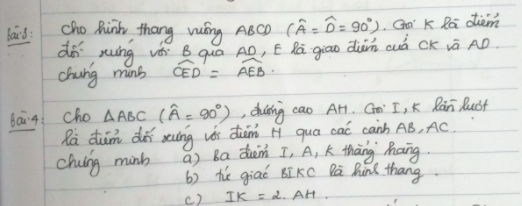 Bài 3: Cho hình thang vuông ABCD (Â = D̂ = 90°). Gọi K là điểm
đối xứng với B qua AD, E là giao điểm của CK và AD.
chứng minh ∠CED = ∠AEB.
Bài 4: Cho ΔABC (Â = 90°), đường cao AH. Gọi I, K lần lượt
là điểm đối xứng với điểm H qua các cạnh AB, AC.
chứng minh a) Ba điểm I, A, K thẳng hàng.
b) tứ giác BIKC là hình thang.
c) IK = 2.AH.